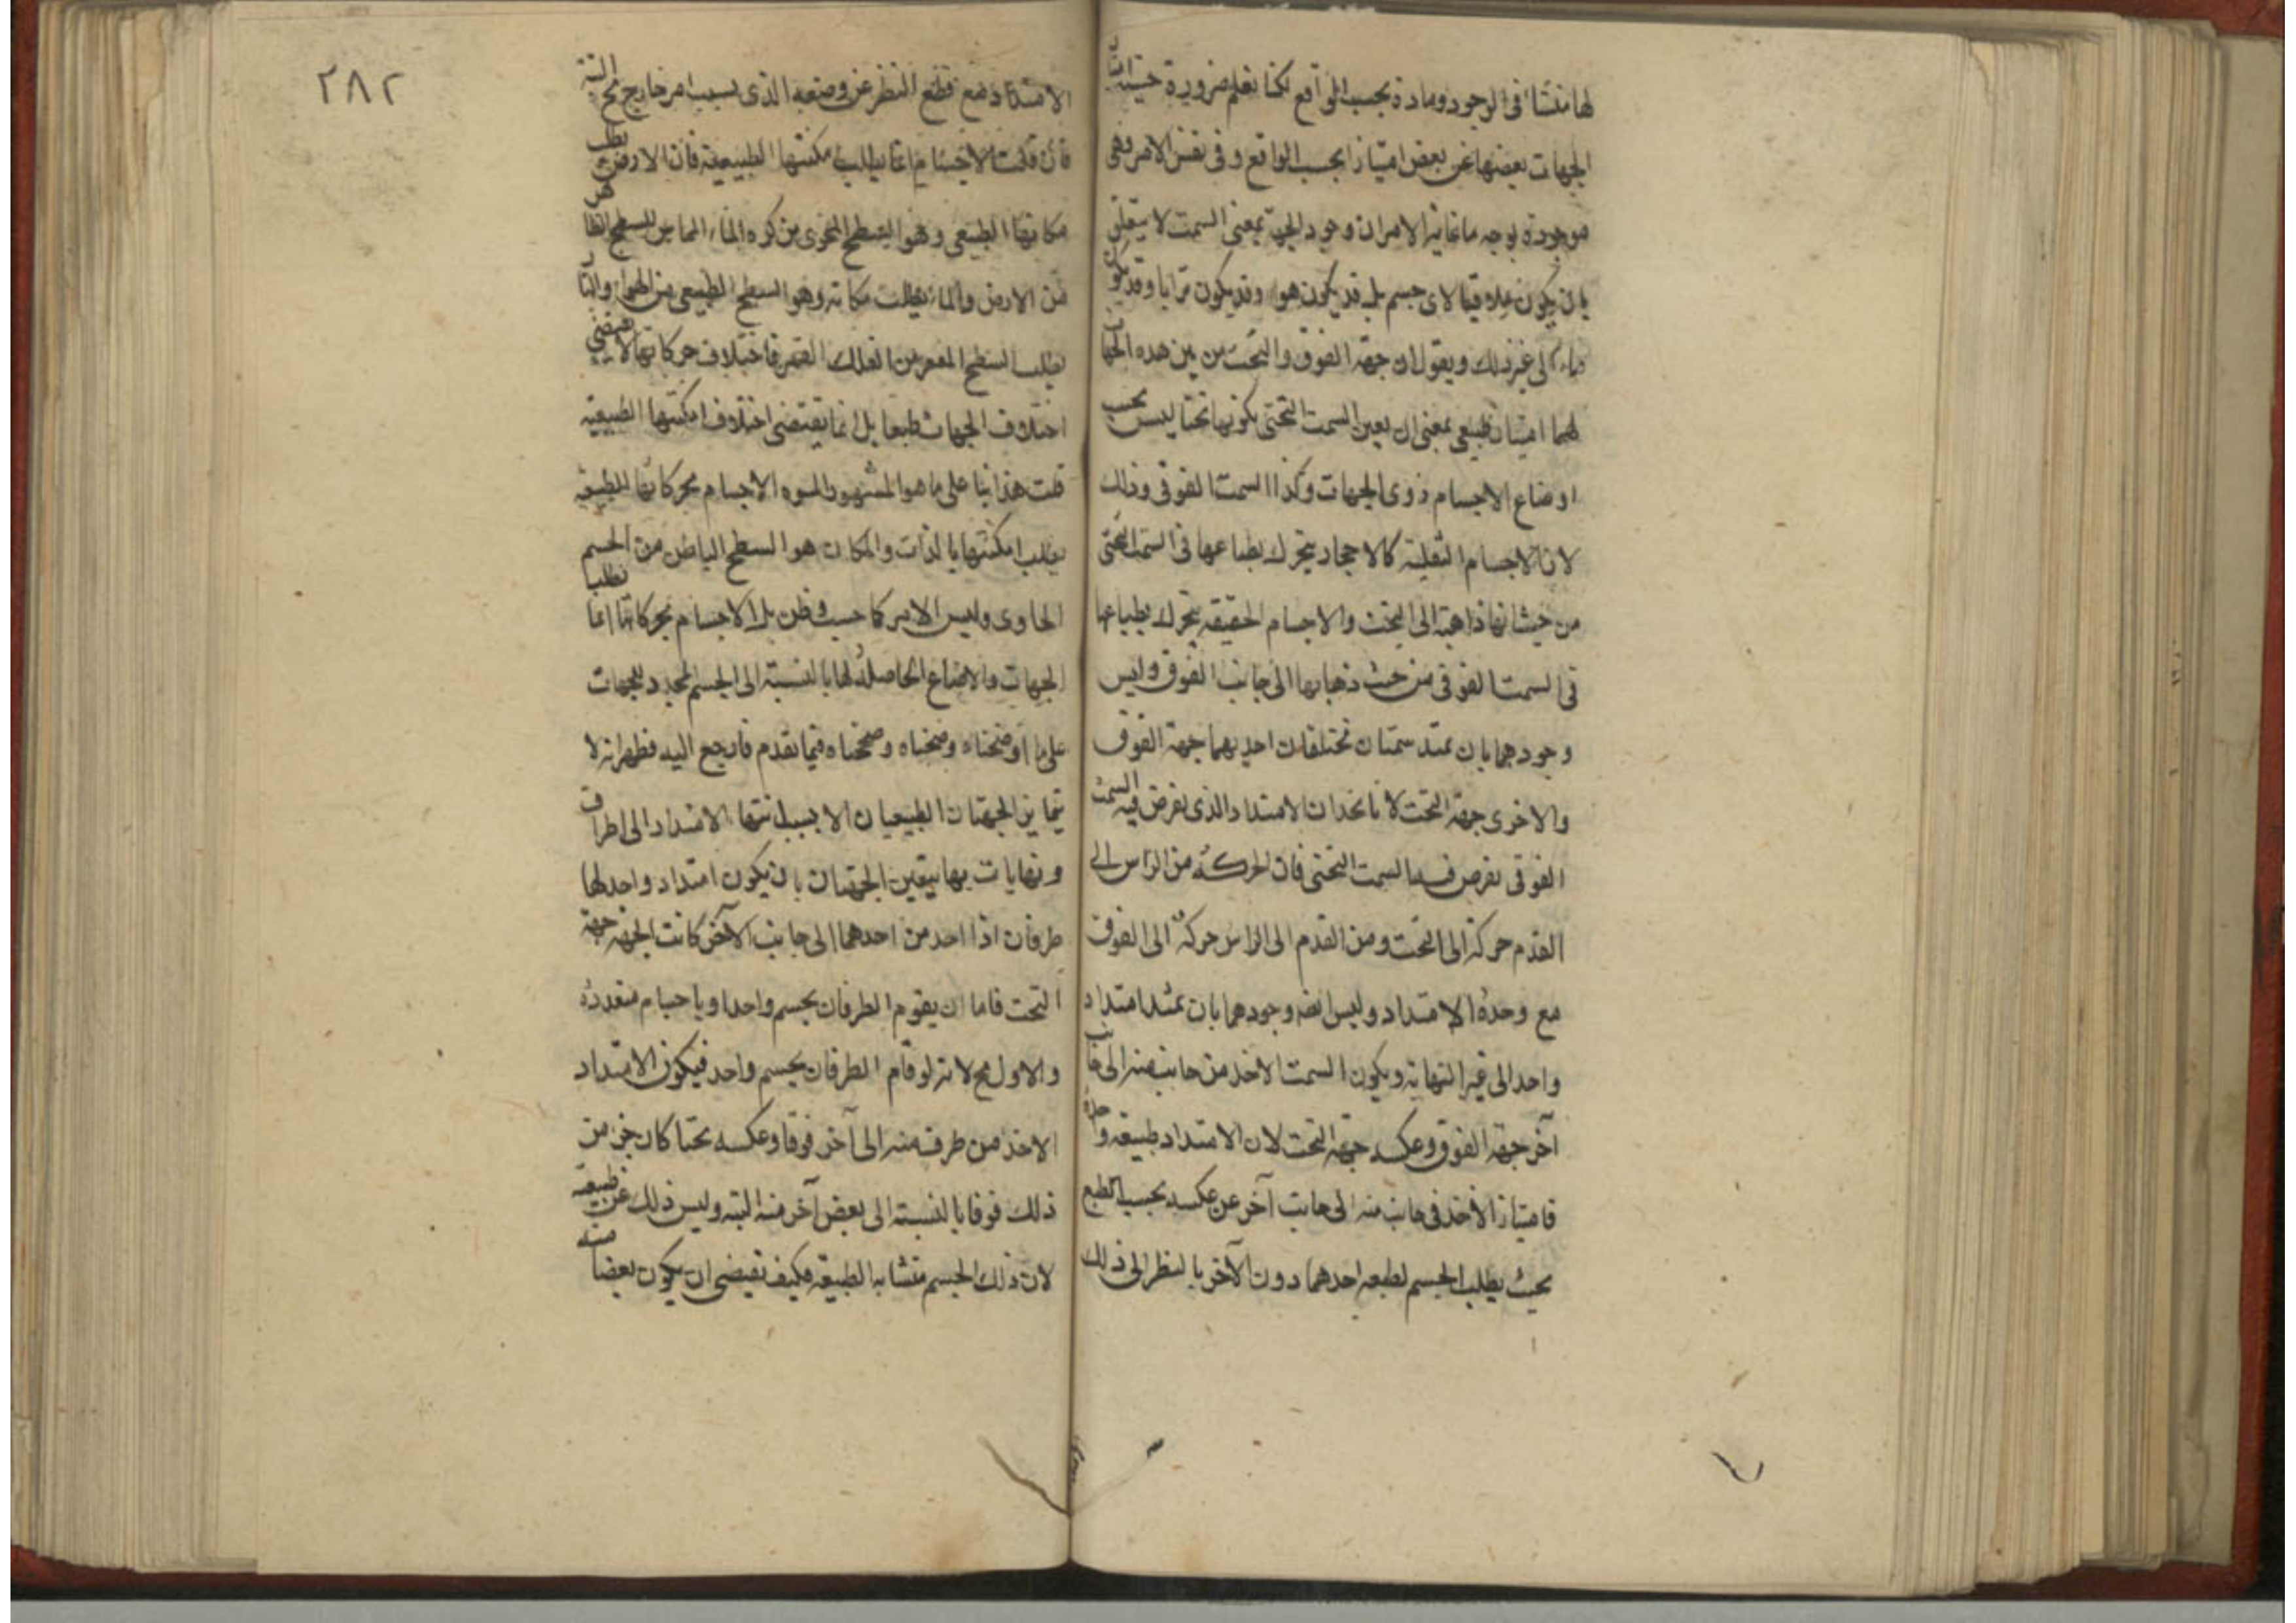 لها منشأ فى الوجود ومادة بحسب الواقع لكنا نعلم ضرورة حيث امتياز
الجهات بعضها عن بعض امتيازا بحسب الواقع وفى نفس الامر فهى
موجودة بوجه ما غاية الامر ان وجود الجهة بمعنى السمت لا يتعلق
بان يكون علاقيا لاى جسم بل قد يكون هواء وقد يكون ترابا وقد يكون
ماء الى غير ذلك ويقول ان جهة الفوق والتحت من بين هذه الجهات
لهما امتياز طبيعى بمعنى ان يعين السمت التحتى بكونها تحتا ليس بحسب
اوضاع الاجسام ذوى الجهات وكذا السمت الفوقى وذلك
لان الاجسام الثقيلة كالاحجار يتحرك بطباعها فى السمت التحتى
من حيث انها ذاهبة الى التحت والاجسام الخفيفة يتحرك بطباعها
فى السمت الفوقى من حيث ذهابها الى جانب الفوق وليس
وجودهما بان يمتد سمتان مختلفان احديهما جهة الفوق
والاخرى جهة التحت لانا نجد ان الامتداد الذى نفرض فيه السمت
الفوقى نفرض فيه السمت التحتى فان الحركة من الراس الى
القدم حركة الى التحت ومن القدم الى الراس حركة الى الفوق
مع وحدة الامتداد وليس ايضه وجودهما بان يمتد امتداد
واحد الى غير النهاية ويكون السمت الاخذ من جانب منه الى جانب
آخر جهة الفوق وعكسه جهة التحت لان الامتداد طبيعة واحدة
فامتياز الاخذ فى جانب منه الى جانب آخر عن عكسه بحسب الطبع
بحيث يطلب الجسم لطبعه احدهما دون الآخر بالنظر الى ذلك
٢٨٢
الامتداد مع قطع النظر عن وضعه الذى بسبب امر خارج مح البتة
فان قلت الاجسام انما يطلب امكنتها الطبيعية فان الارض يطلب
مكانها الطبيعى وهو السطح المحوى من كره الماء المماس للسطح الظاهر
من الارض والماء يطلب مكانه وهو السطح الطبيعى من الهواء والنار
يطلب السطح المقعر من الفلك القمر فاختلاف حركاتها لا يقتضى
اختلاف الجهات طبعا بل انما يقتضى اختلاف امكنتها الطبيعية
قلت هذا بنا على ما هو المشهور الاجسام بحركاتها الطبيعية
يطلب امكنتها بالذات والمكان هو السطح الباطن من الجسم
الحاوى وليس الامر كما حسب وظن بل الاجسام بحركاتها انما تطلب
الجهات والاوضاع الحاصلة لها بالنسبة الى الجسم المحدد للجهات
على ما اوضحناه وصححناه فيما تقدم فارجع اليه فظهر انه لا
يتمايز الجهتان الطبيعيتان الا بسبب انتهاء الامتداد الى اطراف
ونهايات بها يتعين الجهتان بان يكون امتداد واحد لها
طرفان اذا اخذ من احدهما الى جانب الآخر كانت الجهة جهة
التحت فاما ان يقوم الطرفان بجسم واحد او باجسام متعدده
والاول مح لانه لو قام الطرفان بجسم واحد فيكون الامتداد
الاخذ من طرف منه الى آخر فوقا وعكسه تحتا كان جزء من
ذلك فوقا بالنسبة الى بعض آخر منه البتة وليس ذلك عن طبيعة
لان ذلك الجسم متشابه الطبيعة فكيف تقتضى ان يكون بعضا منه